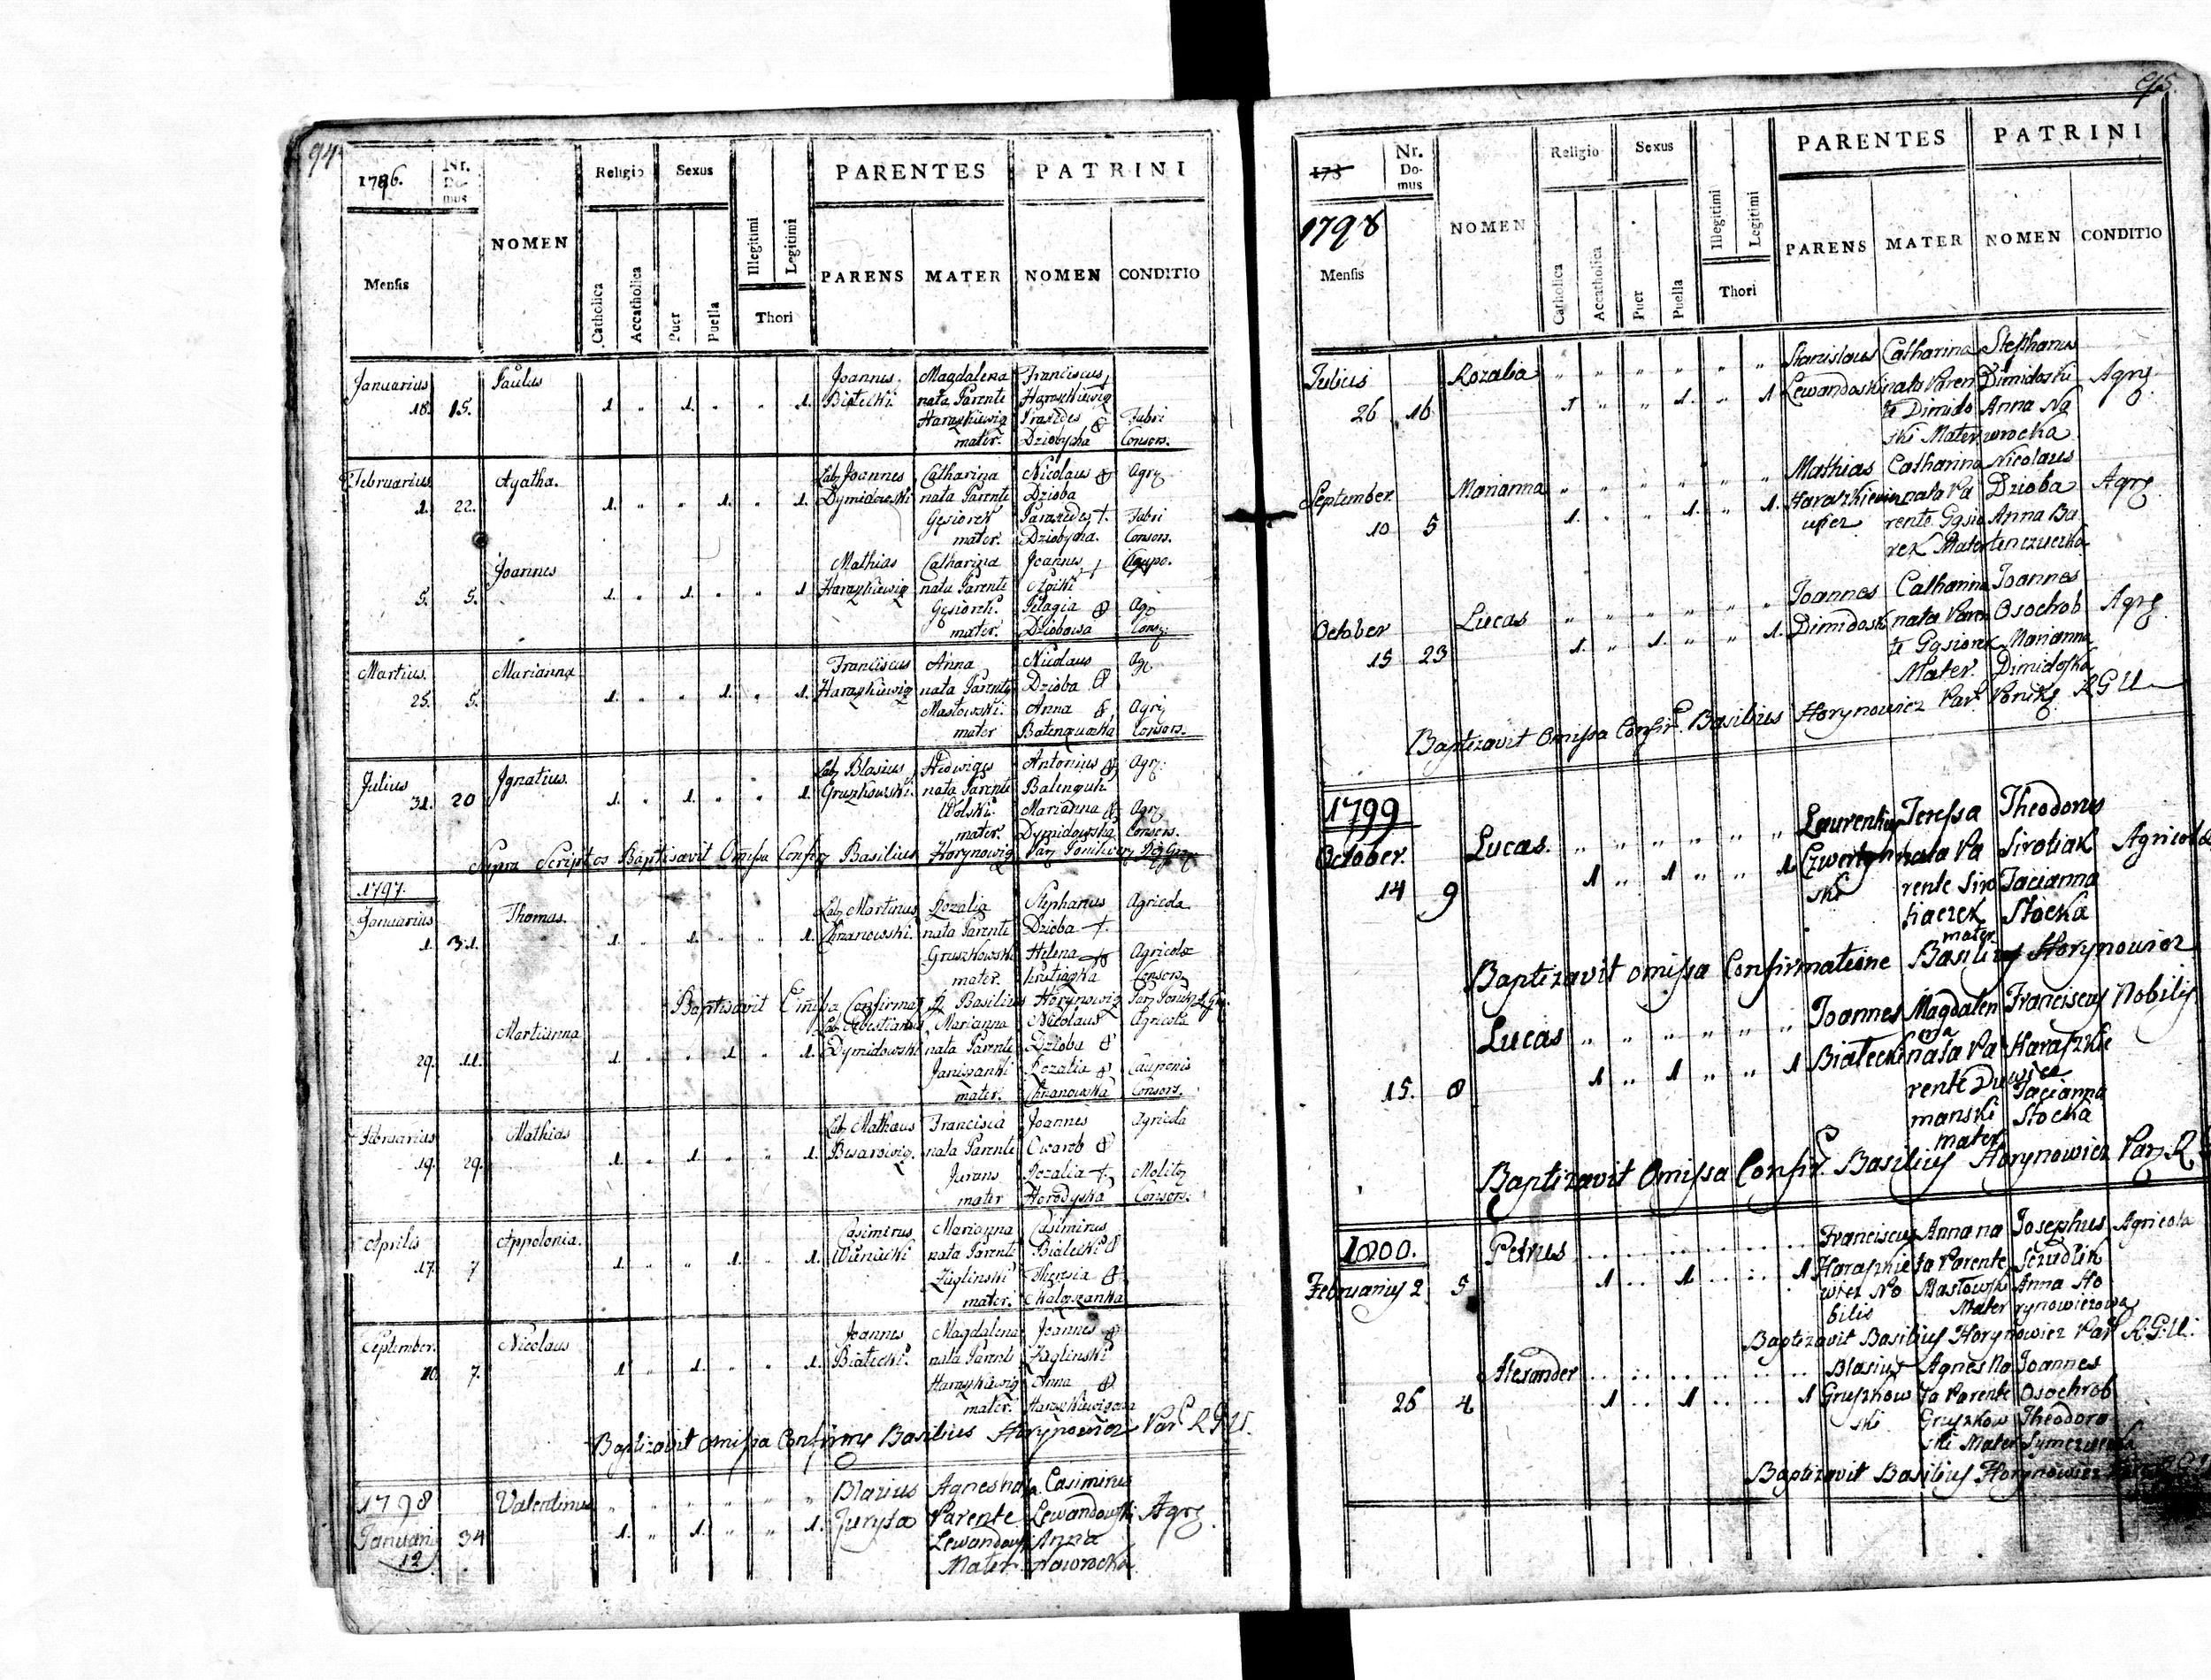 94
1796.
Nr. Do- mus
NOMEN
Religio
Sexus
Illegitimi
Legitimi
PARENTES
PATRINI
Mensis
Catholica
Accatholica
Puer
Puella
Thori
PARENS
MATER
NOMEN
CONDITIO
Januarius Paulus Joannes Magdalena Franciscus
18. 15. 1. " 1. " " 1. Białecki nata Parente Haraszkiewicz
Haraszkiewicz Fabri
mater. Dziobycha Consors.
Februarius Agatha. Lab. Joannes Catharina Nicolaus Agr
1. 22. 1. " " 1. " 1. Dymidowski nata Parente Dzioba
Gęsiorek Fabri
mater. Dziobycha. Consors.
Joannes Mathias Catharina Joannes
5. 5. 1. " 1. " " 1. Haraszkiewicz nata Parente
Gęsiorek. Pelagia Agr
mater. Dziobowa Cons.
Martius. Marianna Franciscus Anna Nicolaus Agr
25. 5. 1. " " 1. " 1. Haraszkiewicz nata Parente Dzioba
Masłowski. Anna Agri
mater Consors.
Julius Ignatius. Lab. Blasius Hedwigis Antonius Agr.
31. 20 1. " 1. " " 1. Gruszkowski. nata Parente
Wolski. Marianna Agr
mater. Dymidowska Consors.
Supra Scriptos Baptisavit Omissa Confir Basilius Horynowicz
1797.
Januarius Thomas. Lab. Martinus Rozalia Stephanus Agricola
1. 31. 1. " 1. " " 1. Chranowski. nata Parente Dzioba +.
Gruszkowski Helena Agricolæ
mater. Consors
Baptisavit Omissa Confirma Basilius Horynowicz
Martianna Marianna Nicolaus Agricola
29. 11. 1. " " 1. " 1. Dymidowski nata Parente Dzioba
Rozalia Cauponis
mater. Chranowska Consors.
Februarius Mathias Lab. Mathæus Francisca Joannes Agricola
19. 29. 1. " 1. " " 1. nata Parente
Rozalia +
mater Horodyska Consors.
Aprilis Appolonia. Casimirus Marianna Casimirus
17. 7 1. " " 1. " 1. nata Parente Białecki
Żuglinski
mater.
September. Nicolaus Joannes Magdalena Joannes
10. 7. 1. " 1. " " 1. Białecki. nata Parente
Haraszkiewicz Anna
mater.
Baptizavit omissa Confirm Basilius Horynowicz Par R G U.
1798 Valentinus " " " " " " Blazius Agnes na ta Casimirus
Januari 34 1. " 1. " " 1. Jurysta Parente Lewandowski Agr
12 Lewandowski Anna
Mater. Nawrocka
95.
178
1798
Nr. Do- mus
NOMEN
Religio
Sexus
Illegitimi
Legitimi
PARENTES
PATRINI
Mensis
Catholica
Accatholica
Puer
Puella
Thori
PARENS
MATER
NOMEN
CONDITIO
Julius Rozalia " " " " " " Stanislaus Catharina Stephanus
26 16 1 " " 1. " 1 Lewandoski nata Paren Dimidoski Agrg
te Dimido Anna Na
ski Mater. wrocka
September. Marianna " " " " " " Mathias Catharina Nicolaus
10 5 1. " " 1. " 1. Haraszkie nata Pa Dzioba Agrg
wicz rente Gąsio Anna Ba
rek Mater
October Lucas " " " " " " Joannes Catharina Joannes
15 23 1. " 1. " " 1. Dimidosk nata Paren Osochob Agrg
te Gąsiorek Marianna
Mater. Dimidoska
Baptizavit Omissa Confir. Basilius Horynowicz Par. R G U
1799
October. Lucas. " " " " " " Laurentius Teressa Theodorus
14 9 1 " 1 " " 1 Czwertyn nata Pa Sirotiak Agricola
ski rente Siro Tacianna
tiaczek Stocka
mater
Baptizavit omissa Confirmatione Basilius Horynowicz
Lucas " " " " " " Joannes Magdalen Franciscus Nobilis
15. 8 1 " 1 " " 1 Białecki na nata Pa Haraszkie
rente Du wicz
manski Tacianna
mater Stocka
Baptizavit Omissa Confir. Basilius Horynowicz Par R
1800. Petrus Franciscus Anna na Josephus Agricola
Februarius 2 5 1 .. 1 .. .. 1 Haraszkie ta Parente
wicz No Masłowski Anna Ho
bilis Mater rynowiczowa
Baptizavit Basilius Horynowicz Par. R.G.U.
Alexander Blasius Agnes Na Joannes
26 4 1 .. 1 .. .. 1 Gruszkow ta Parente Osochrob
ski Gruszkow Theodora
ski Mater
Baptizavit Basilius Horynowicz